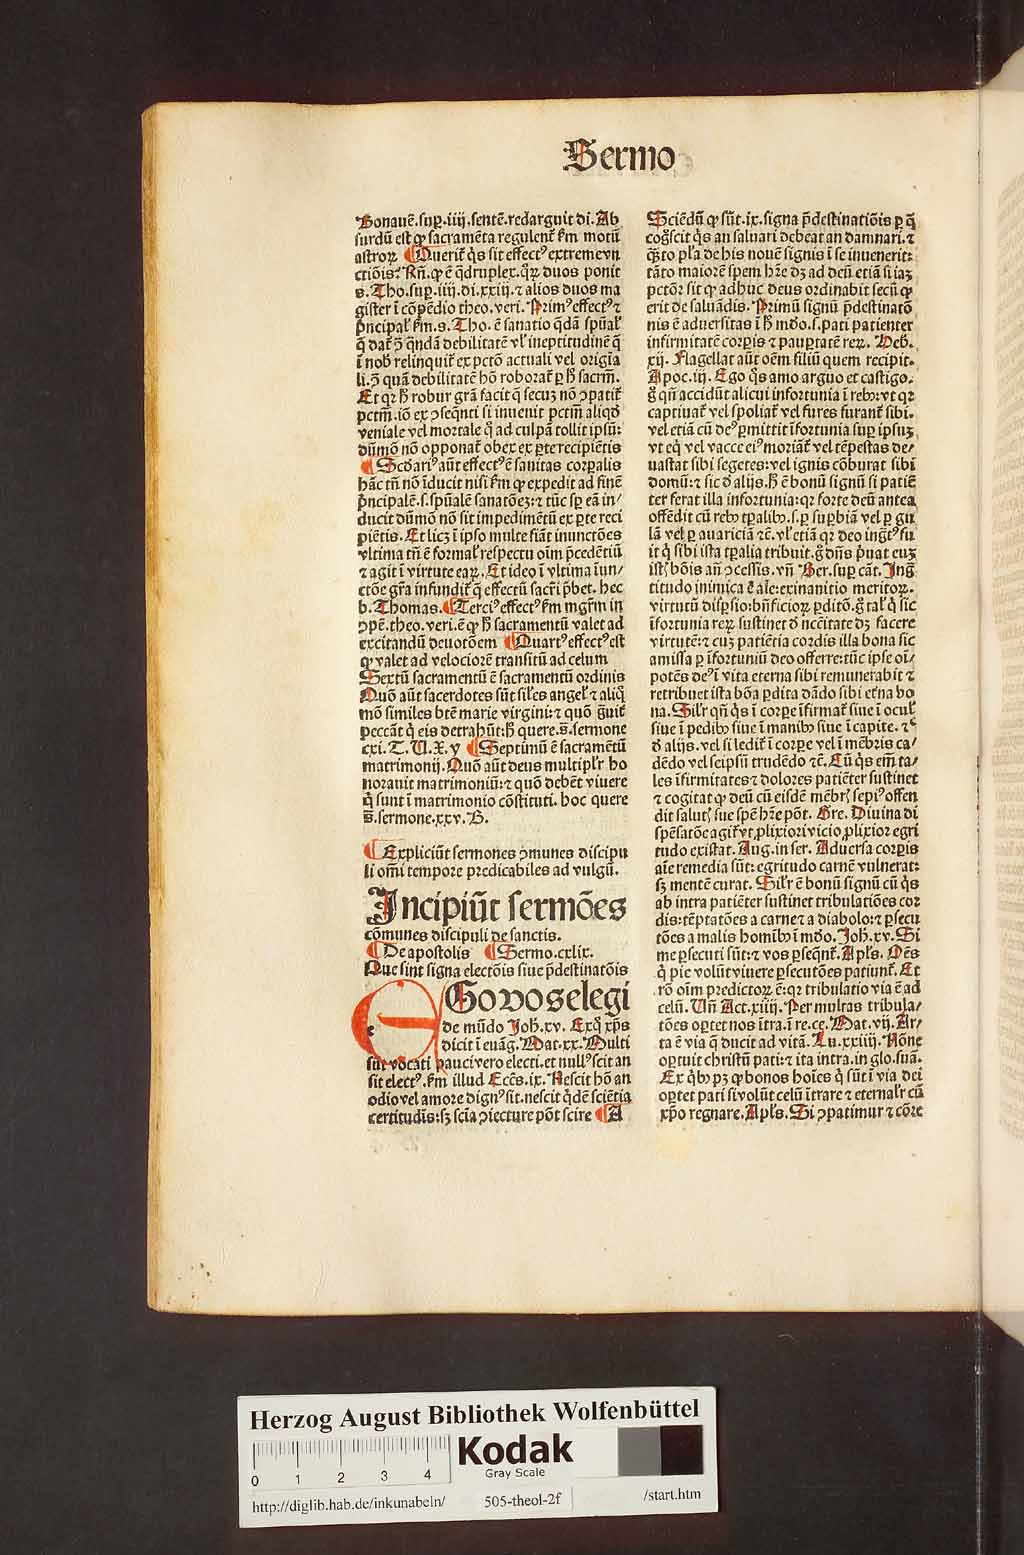 Sermo
Bonauē.suꝑ.iiij.sentē.redarguit di. Ab
surdū est ꝙ sacramēta regulent᷑ ẜm motū
astroꝝ ¶Querit᷑ q̇s sit effectꝰ extreme vn
ctiōis? Rñ. ꝙ ē q̄druplex. qꝛ duos ponit
s.Tho.suꝑ.iiij.di.xxij.⁊ alios duos ma
gister ī cōpēdio theo.veri. Primꝰ effectꝰ ⁊
pͥncipal᷑ ẜm.s.Tho. ē sanatio q̄dā spūal᷑
q̄ dat᷑ ꝯ q̄ndā debilitatē vl᷑ ineptitudinē q̄
ī nob᷑ relinquit᷑ ex pctō actuali vel origīa
li.ꝯ quā debilitatē hō roborat᷑ ꝑ h̄ sacrm̄.
Et qꝛ h̄ robur grā facit q̄ secū nō ꝯpatit᷑
pctm̄.iō ex ꝯseq̄nti si inuenit pctm̄ aliqd̄
veniale vel mortale q̄ ad culpā tollit ipsū:
dūmō nō opponat᷑ obex ex ꝑte recipiētis
¶Scd̄ariꝰ aūt effectꝰ ē sanitas corꝑalis
hāc tn̄ nō īducit nisi ẜm ꝙ expedit ad finē
pͥncipalē.s.spūalē sanatōeꝫ:⁊ tūc sꝑ eā in/
ducit dūmō nō sit impedimētū ex ꝑte reci
piētis. Et licꝫ ī ipso multe fiāt inunctōes
vltima tn̄ ē formal᷑ respectu oīm p̄cedētiū
⁊ agit ī virtute eaꝝ. Et ideo ī vltima īun/
ctōe gr̄a infundit᷑ q̄ effectū sacrī p̄bet. hec
b. Thomas.¶Terciꝰ effectꝰ ẜm mgr̄m in
ꝯpē.theo.veri.ē ꝙ h̄ sacramentū valet ad
excitandū deuotōem ¶Quartꝰ effectꝰ est
ꝙ valet ad velociorē transitū ad celum
Sextū sacramentū ē sacramentū ordinis
Quō aūt sacerdotes sūt siles angel᷑ ⁊ aliq̄
mō similes btē marie virgini:⁊ quō g̅uit᷑
peccāt q̇ eis detrahūt:h̄ quere.s̄.sermone
cxi.T.U.X.y ¶Septimū ē sacramētū
matrimonij.Quō aūt deus multipl᷑r ho
norauit matrimoniū:⁊ quō debēt viuere
q̇ sunt ī matrimonio cōstituti. hoc quere
s̄.sermone.xxv.B.
¶Expliciūt sermones ꝯmunes discipu
li om̄i tempore predicabiles ad vulgū.
Incipiūt sermōes
cōmunes discipuli de sanctis.
¶De apostolis ¶Sermo.cxlix.
Que sint signa electōis siue p̄destinatōis
EGo vos elegi
de mūdo Joh̄.xv. Exq̇ xp̄s
dicit ī euāg.Mat.xx.Multi
sūt vocati pauci vero electi.et nullꝰ scit an
sit electꝰ.ẜm illud Eccēs.ix.Nescit hō an
odio vel amore dignꝰ sit.nescit q̄dē sciētia
certitudis:sꝫ scīa ꝯiecture pōt scire ¶A
Sciēdū ꝙ sūt.ix.signa p̄destinatiōis ꝑ q̄
cog̊scit q̇s an saluari debeat an damnari.⁊
q̄ꝫto pl᷑a de his nouē signis ī se inuenerit:
tāto maiorē spem hr̄e dꝫ ad deū etiā si iaꝫ
pctōr sit ꝙ adhuc deus ordinabit secū ꝙ
erit de saluādis. Primū signū p̄destinatō
nis ē aduersitas ī h̄ mūdo.s.pati patienter
infirmitatē corꝑis ⁊ pauꝑtatē reꝝ. Heb.
xij. Flagellat aūt oēm filiū quem recipit.
Apoc.iij. Ego q̊s amo arguo et castigo.
g̊ qn̄ accidūt alicui infortunia ī rebꝰ:vt qꝛ
captiuat᷑ vel spoliat᷑ vel fures furant᷑ sibi.
vel etiā cū deꝰ ꝑmittit īfortunia suꝑ ipsuꝫ
vt eq̇ vel vacce eiꝰ moriāt᷑ vel tēpestas de/
uastat sibi segetes:vel ignis cōburat sibi
domū:⁊ sic d̄ alijs.h̄ ē bonū signū si patiē
ter ferat illa infortunia:qꝛ forte deū antea
offēdit cū rebꝰ tꝑalibꝰ.s.ꝑ suꝑbiā vel ꝑ gu
lā vel ꝑ auariciā ⁊ē.vl᷑ etiā qꝛ deo ingͣtꝰ fu
it q̇ sibi ista tꝑalia tribuit.g̊ dn̄s pͥuat euꝫ
ist᷑ bōis añ ꝯcessis.vñ Ber.suꝑ cāt. Ingͣ
titudo inimica ē aīe:exinanitio meritoꝝ.
virtutū disꝑsio:bn̄ficioꝝ ꝑditō.g̊ tal᷑ q̇ sic
īfortunia reꝝ sustinet d̄ nccitate dꝫ facere
virtutē:⁊ cuꝫ patiētia cordis illa bona sic
amissa ꝑ īfortuniū deo offerre:tūc ipse oī/
potēs deꝰ ī vita eterna sibi remunerabit ⁊
retribuet ista bōa ꝑdita dādo sibi etͤna bo
na. Silr qn̄ q̇s ī corꝑe īfirmat᷑ siue ī ocul᷑
siue ī pedibꝰ siue ī manibꝰ siue ī capite. ⁊ c̄
d̄ alijs. vel si ledit᷑ ī corꝑe vel ī mēbris ca/
dēdo vel seipsū trudēdo ⁊c̄. Cū q̇s em̄ ta/
les īfirmitates ⁊ dolores patiēter sustinet
⁊ cogitat ꝙ deū cū eisdē mēbr᷑ sepiꝰ offen
dit salut᷑ sue spē hr̄e pōt. Gre. Diuina di
spēsatōe agit᷑ vt ꝓlixiori vicio ꝓlixior egri
tudo existat. Aug.in ser. Aduersa corꝑis
aīe remedia sūt:egritudo carnē vulnerat:
sꝫ mentē curat. Sil᷑r ē bonū signū cū q̇s
ab intra patiēter sustinet tribulatiōes cor
dis:tēptatōes a carne ⁊ a diabolo:⁊ ꝑsecu
tōes a malis homībꝰ ī mūdo. Joh̄.xv. Si
me ꝑsecuti sūt:⁊ vos ꝑseq̄nt᷑.Apl̄s. Oēs
q̇ pie volūt viuere ꝑsecutōes patiunt᷑. Et
rō oīm predictoꝝ ē:qꝛ tribulatio via ē ad
celū. Uñ Act.xiiij. Per multas tribula/
tōes oꝑtet nos ītra.ī re.ce. Mat.vij. Ar/
ta ē via q̄ ducit ad vitā. Lu.xxiiij. Nōne
oꝑtuit christū pati:⁊ ita intra.in glo.suā.
Ex q̇bꝰ pꝫ ꝙ bonos hoīes q̇ sūt ī via dei
oꝑtet pati si volūt celū ītrare ⁊ eternalr cū
xp̄o regnare.Apl̄s. Si ꝯpatimur ⁊ cōre
Herzog August Bibliothek Wolfenbüttel
0 1 2 3 4
Kodak
Gray Scale
http://diglib.hab.de/inkunabeln/ 505-theol-2f /start.htm